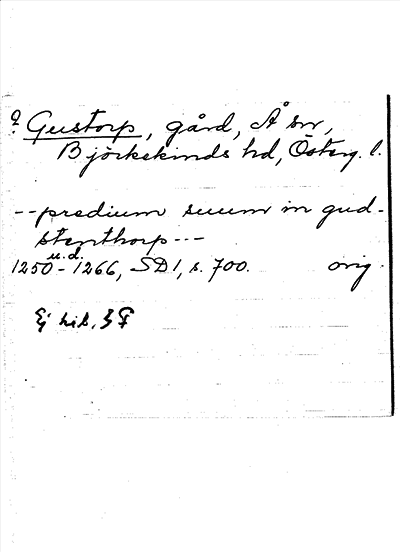 ? Gustorp, gård, Å sn,
Björkekinds hd, Österg. l.
-- predium suum in gud-
stenthorp ---
u.d.
1250 - 1266, SD 1, s. 700. orig.
Ej